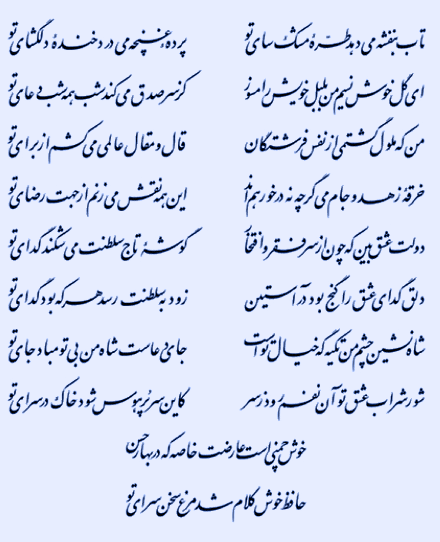 تاب بنفشه می دهد طرّهٔ مشک سای تو پردهٔ غنچه می درد خندهٔ دلگشای تو
ای گل خوش نسیم من بلبل خویش را مسوز کز سر صدق می کند شب همه شب دعای تو
من که ملول گشتمی از نفس فرشتگان قال و مقال عالمی می کشم از برای تو
خرقهٔ زهد و جام می گرچه نه در خور همند این همه نقش می زنم از جهت رضای تو
دولت عشق بین که چون از سر فقر و افتخار گوشهٔ تاج سلطنت می شکند گدای تو
دلق گدای عشق را گنج بود در آستین زود به سلطنت رسد هر که بود گدای تو
شاه نشین چشم من تکیه گه خیال توست جای دعاست شاه من بی تو مباد جای تو
شور شراب عشق تو آن نفسم رود ز سر کاین سر پر هوس شود خاک در سرای تو
خوش چمنی است عارضت خاصه که در بهار حسن
حافظ خوش کلام شد مرغ سخن سرای تو